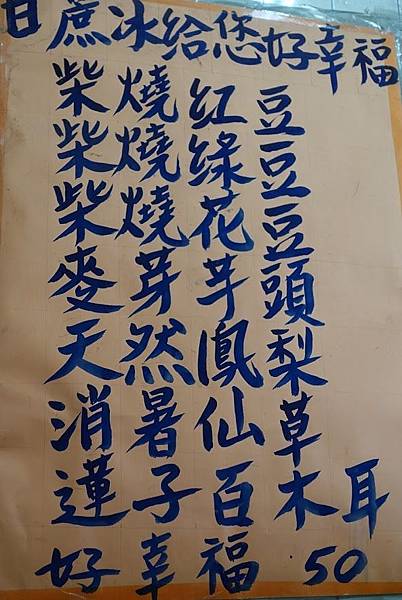 甘蔗冰給您好幸福
柴燒紅豆
柴燒綠豆
柴燒花豆
麥芽芋頭
天然鳳梨
消暑仙草
蓮子百木耳
好幸福50